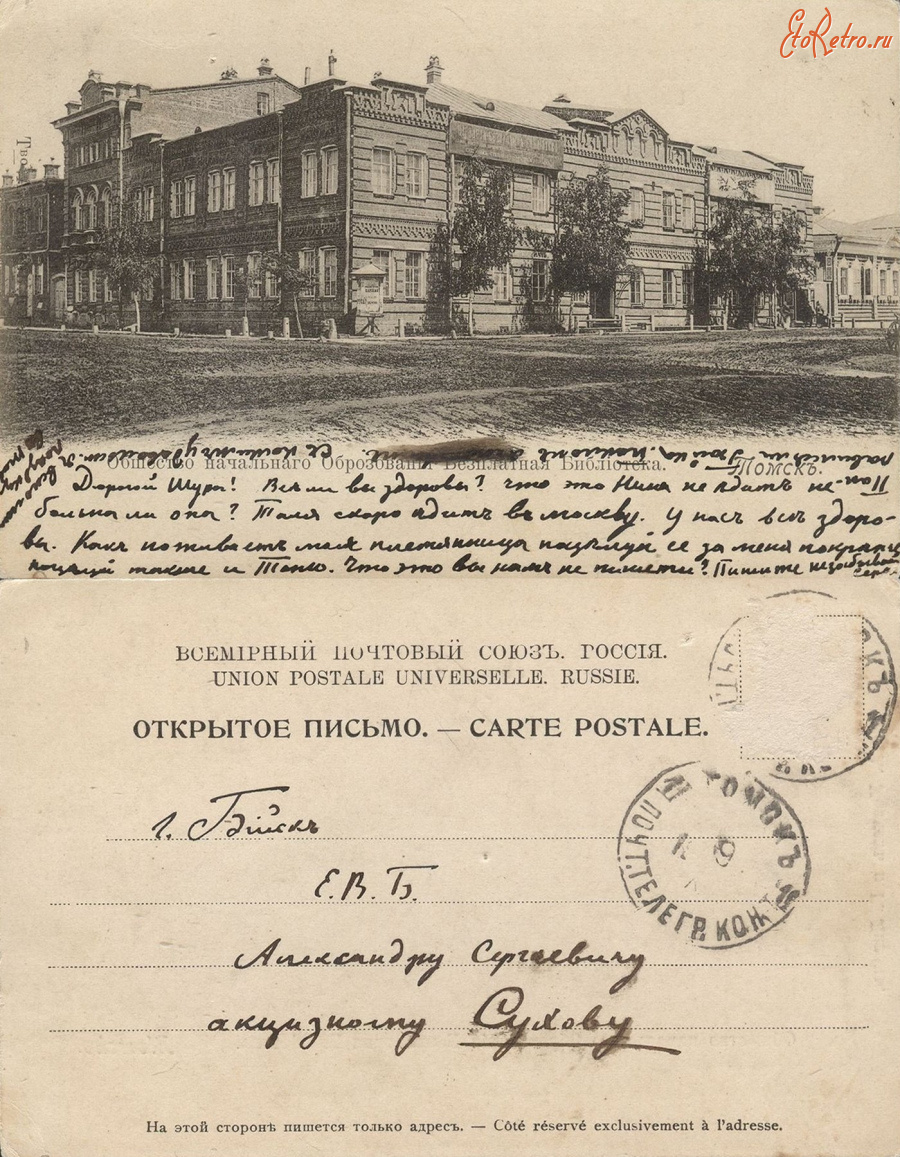 EtoRetro.ru
Общество начальнаго Оброзованы Безплатная Библіотека. Томскъ.
Дорогой Шура! Всѣ ли вы здоровы? что это Нина не ѣдитъ не-
больна ли она? Таля скоро ѣдитъ въ москву. У насъ всѣ здоро-
вы. Какъ поживаетъ моя племянница поцѣлуй ее за меня
поцѣлуй также и Таню. Что это вы намъ не пишети? Пишите
ВСЕМІРНЫЙ ПОЧТОВЫЙ СОЮЗЪ. РОССІЯ.
UNION POSTALE UNIVERSELLE. RUSSIE.
ОТКРЫТОЕ ПИСЬМО. — CARTE POSTALE.
ТОМСКЪ
ПОЧТ. ТЕЛЕГР. КОН
г. Бійскъ
Е. В. Б.
Александру Сергѣевичу
акцизному Сухову
На этой сторонѣ пишется только адресъ. — Côté réservé exclusivement à l'adresse.